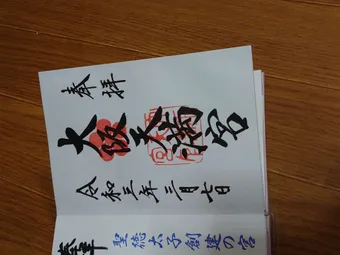 奉拝
大阪天満宮
令和三年三月七日
聖徳太子創建の宮